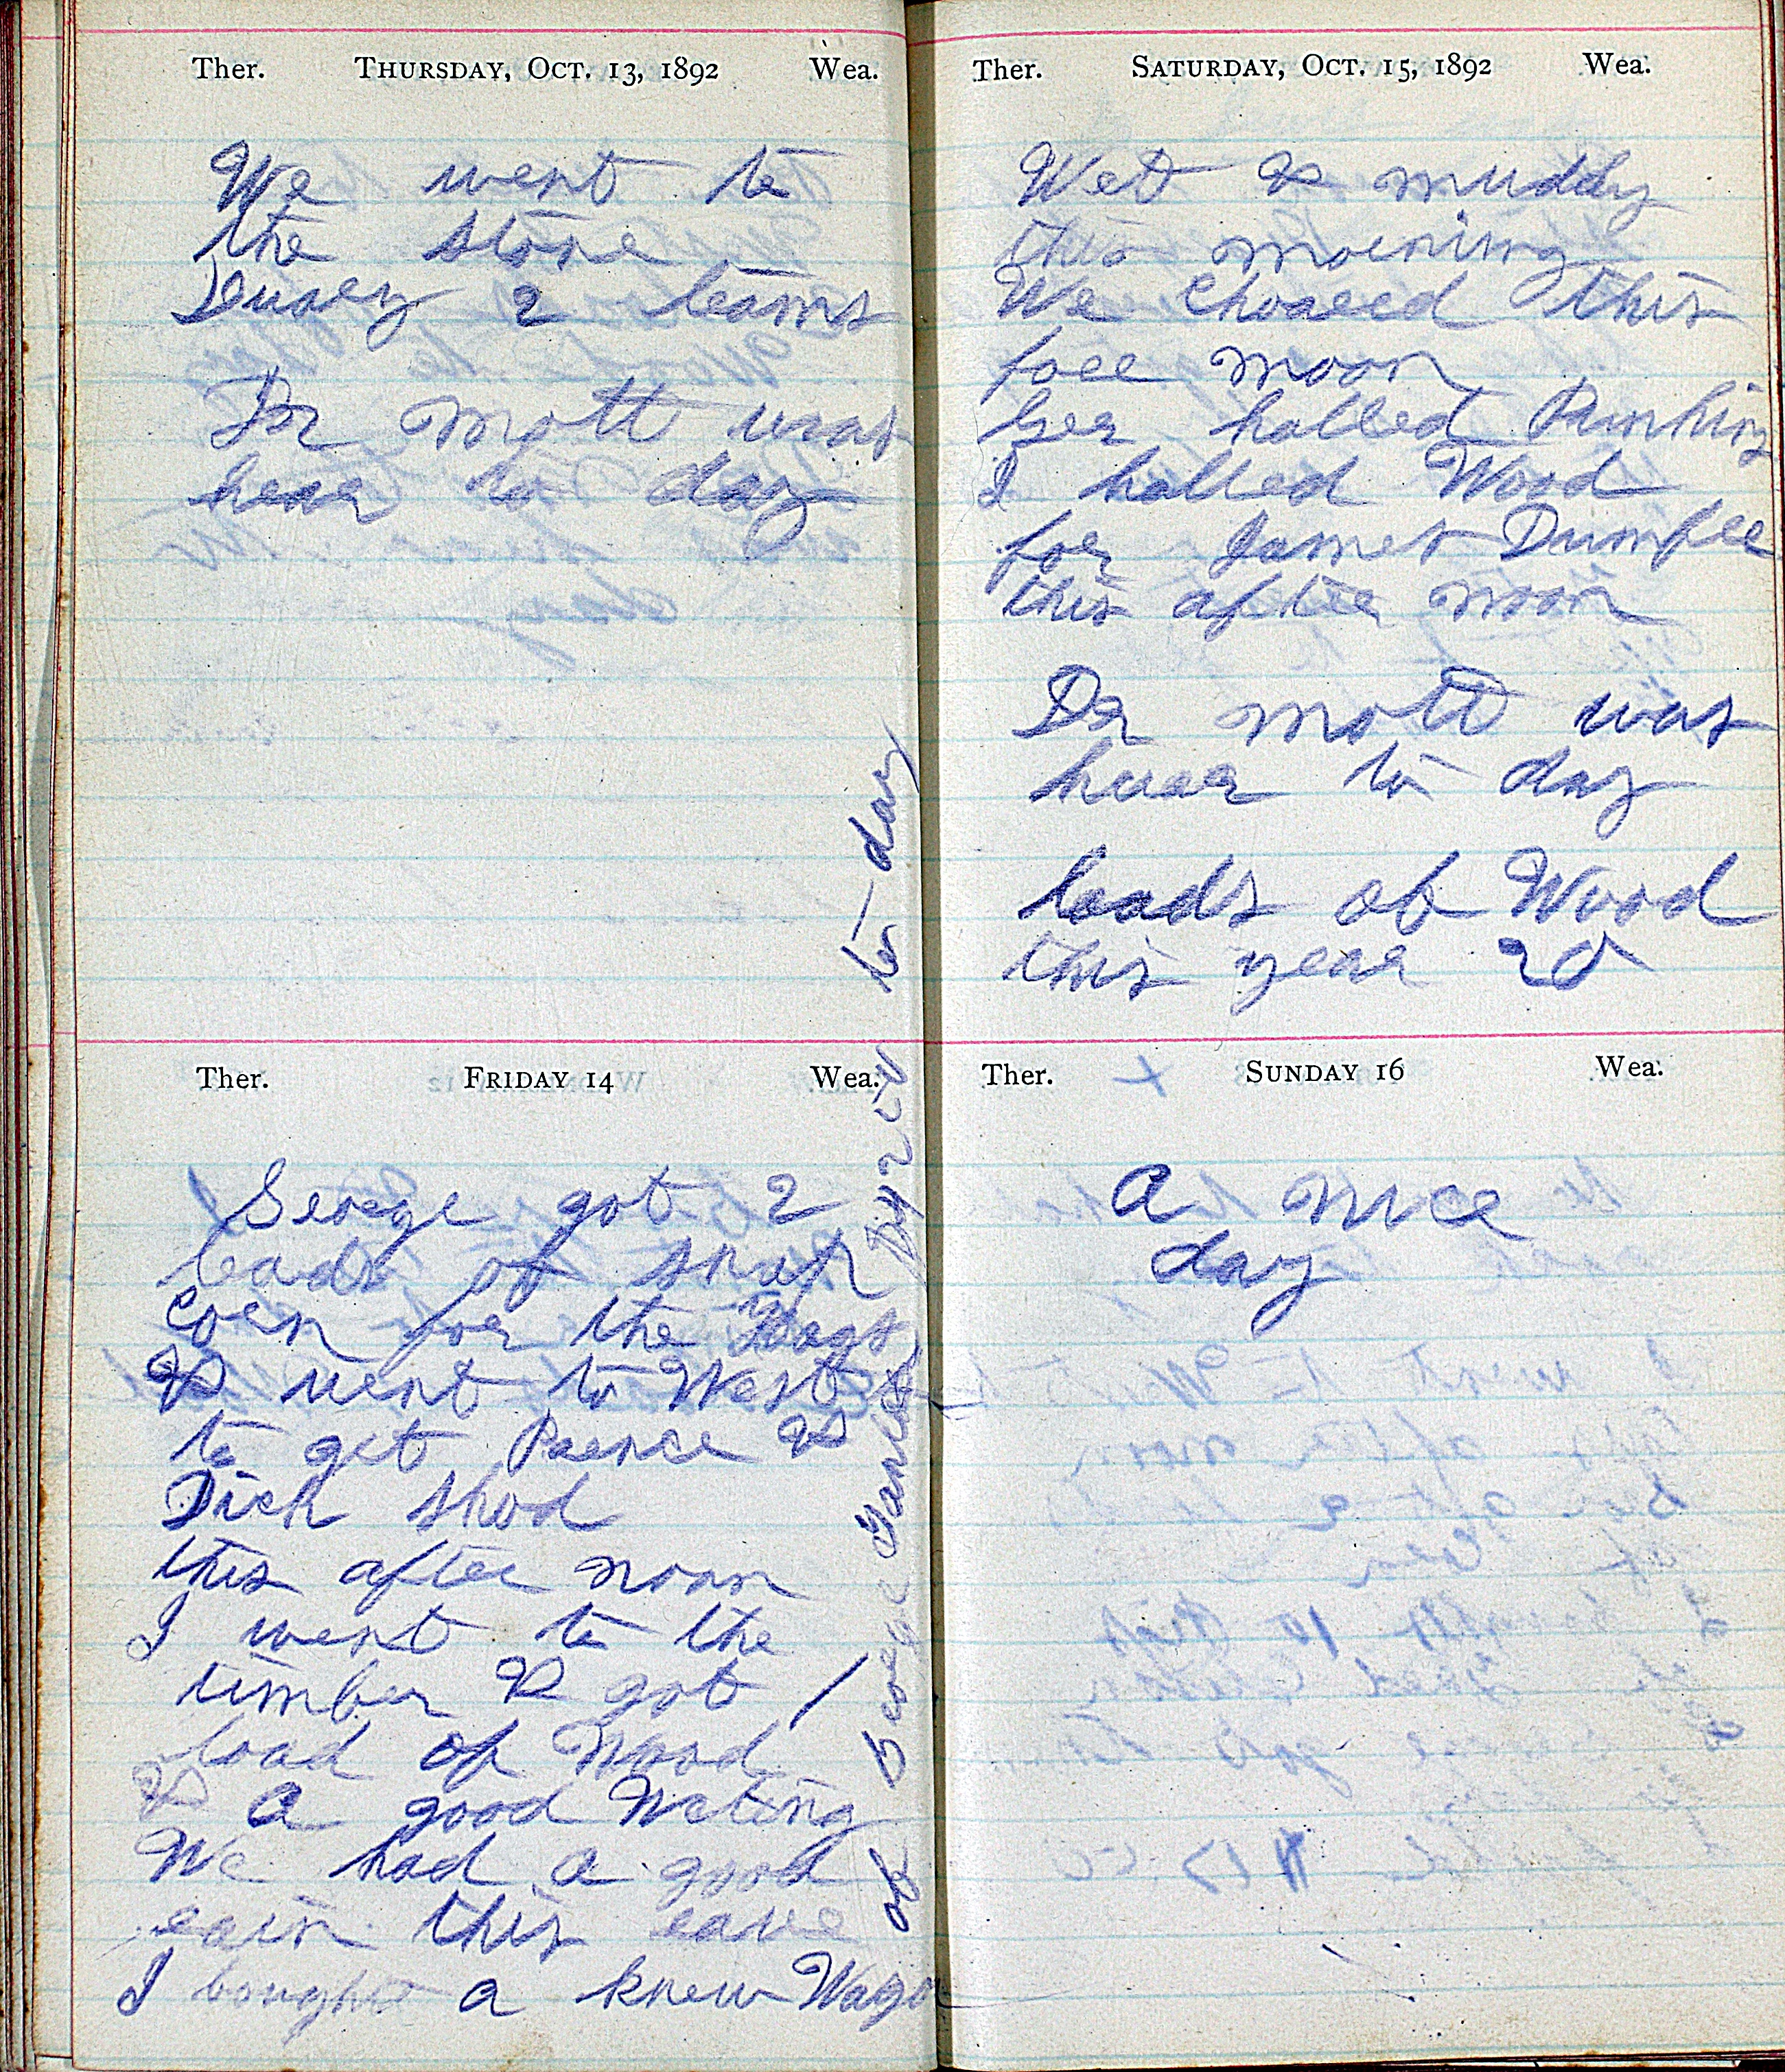 Ther. THURSDAY, OCT. 13, 1892 Wea.
We went to
the store
2 teams
Dr Mott was
hear to day
Ther. FRIDAY 14 Wea.
George got 2
loads of snap
Corn for the Hogs
& went to West
to get &
Dick Shod
this after noon
I went to the
timber & got 1
load of Wood
& a good Weting
We had a good
rain this eave
I bought a knew Wagon
of George to-day
Ther. SATURDAY, OCT. 15, 1892 Wea.
Wet & muddy
this morning
We Choared this
fore noon
halled
I halled Wood
for James
this after noon
Dr Mott was
hear to day
loads of Wood
this year 20
Ther. x SUNDAY 16 Wea.
A nice
day